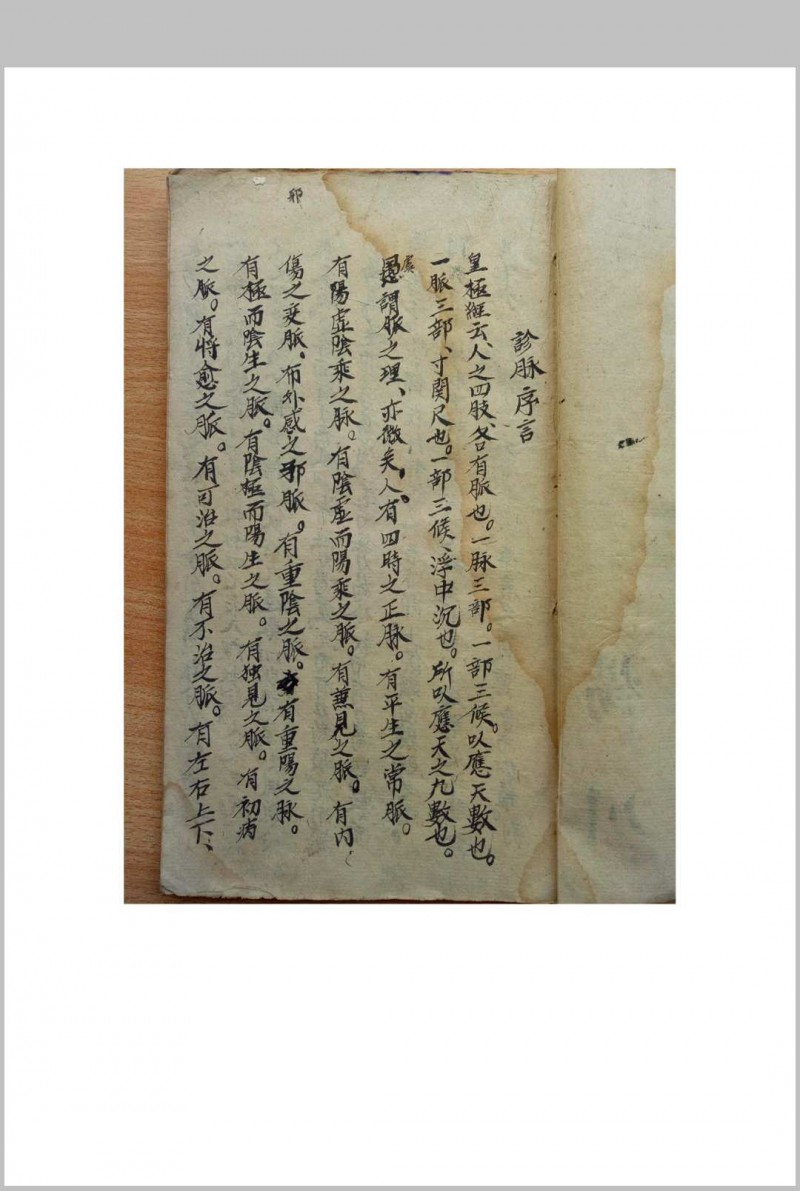 診脈序言
皇極經云、人之四肢、各有脈也。一脉三部。一部三候。以應天數也。
一脈三部、寸関尺也。一部三候、浮中沉也。所以應天之九數也。
愚謂脈之理、亦微矣。人有四時之正脉。有平生之常脈。
有陽虛陰乘之脉。有陰虛而陽乘之脈。有兼見之脈。有內
傷之变脈。有外感之邪脈。有重陰之脈。有重陽之脉。
有極而陰生之脈。有陰極而陽生之脈。有独見之脈。有初病
之脈。有將愈之脈。有可治之脈。有不治之脈。有左右上下、
邪